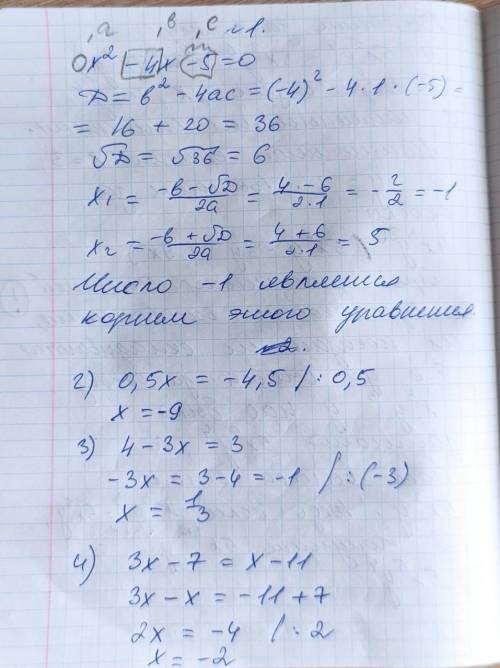 ,а ,в ,с №1.
0x² -4x -5 = 0
D = в² - 4ac = (-4)² - 4·1·(-5) =
= 16 + 20 = 36
√D = √36 = 6
x₁ = (-в - √D)/2a = (4 - 6)/(2·1) = -2/2 = -1
x₂ = (-в + √D)/2a = (4 + 6)/(2·1) = 5
Число -1 является
корнем этого уравнения.
2) 0,5x = -4,5 /:0,5
x = -9
3) 4 - 3x = 3
-3x = 3 - 4 = -1 /:(-3)
x = 1/3
4) 3x - 7 = x - 11
3x - x = -11 + 7
2x = -4 /:2
x = -2